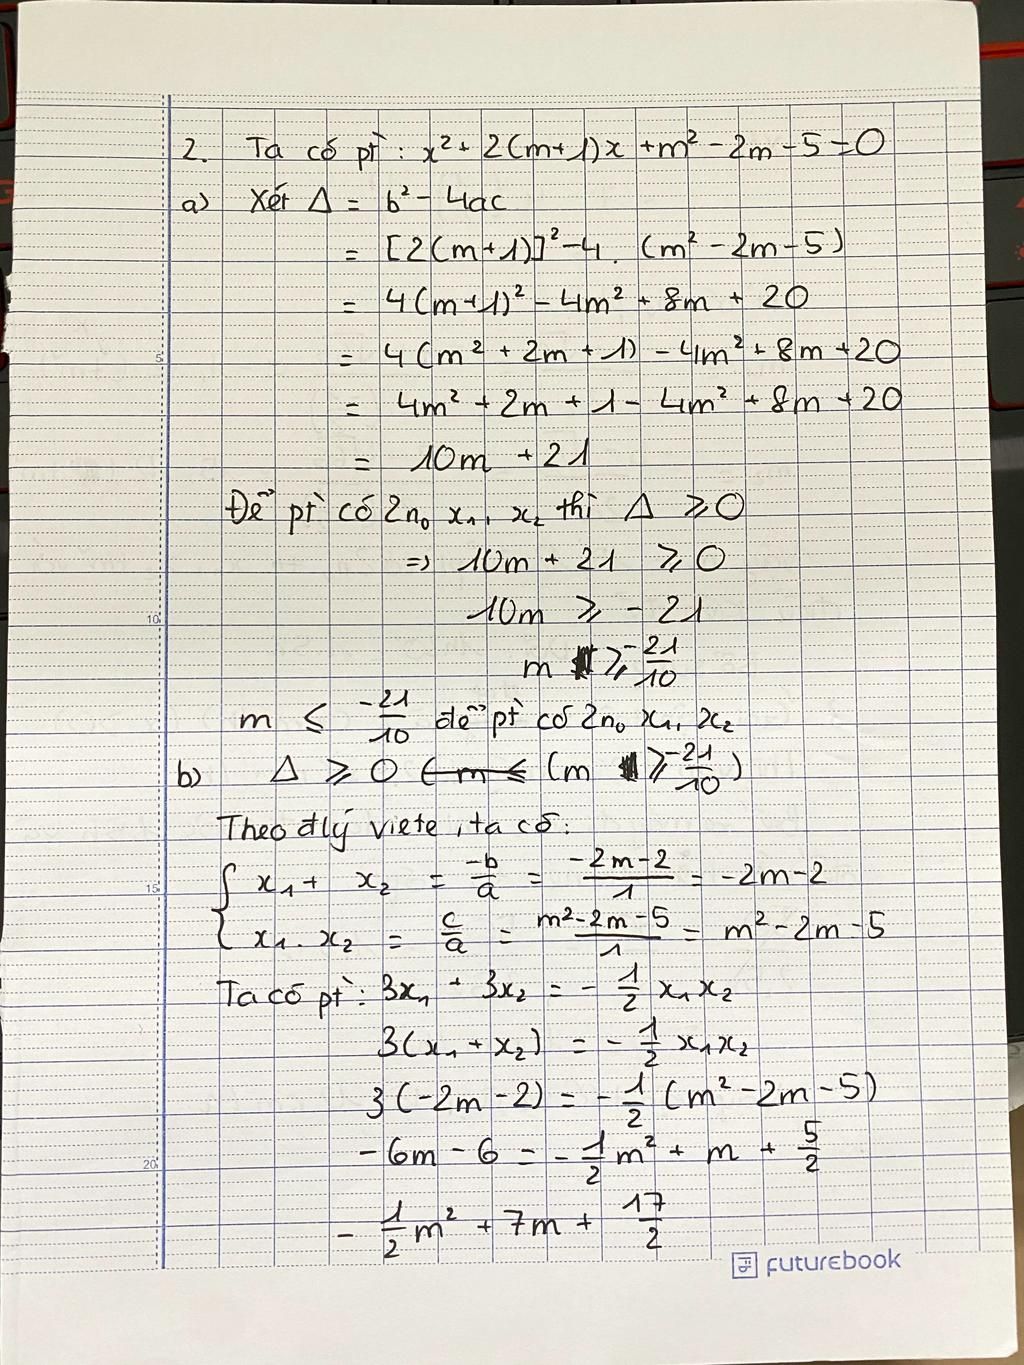 2. Ta có pt̀ : x² + 2(m+1)x + m² - 2m - 5 = 0
a) Xét Δ = b² - 4ac
= [2(m+1)]² - 4. (m² - 2m - 5)
= 4(m+1)² - 4m² + 8m + 20
5 = 4(m² + 2m + 1) - 4m² + 8m + 20
= 4m² + 2m + 1 - 4m² + 8m + 20
= 10m + 21
Để pt̀ có 2n₀ x₁, x₂ thì Δ ⩾ 0
=> 10m + 21 ⩾ 0
10 10m ⩾ - 21
m ⩾ -21/10
m ⩽ -21/10 để pt̀ có 2n₀ x₁, x₂
b) Δ ⩾ 0 (m ⩽ (m ⩾ -21/10)
Theo đlý viete, ta có:
15 { x₁ + x₂ = -b/a = -2m-2/1 = -2m-2
x₁. x₂ = c/a = m²-2m-5/1 = m² - 2m - 5
Ta có pt̀ : 3x₁ + 3x₂ = - 1/2 x₁ x₂
3(x₁ + x₂) = - 1/2 x₁x₂
3(-2m - 2) = - 1/2 (m² - 2m - 5)
20 - 6m - 6 = - 1/2 m² + m + 5/2
- 1/2 m² + 7m + 17/2
futurebook